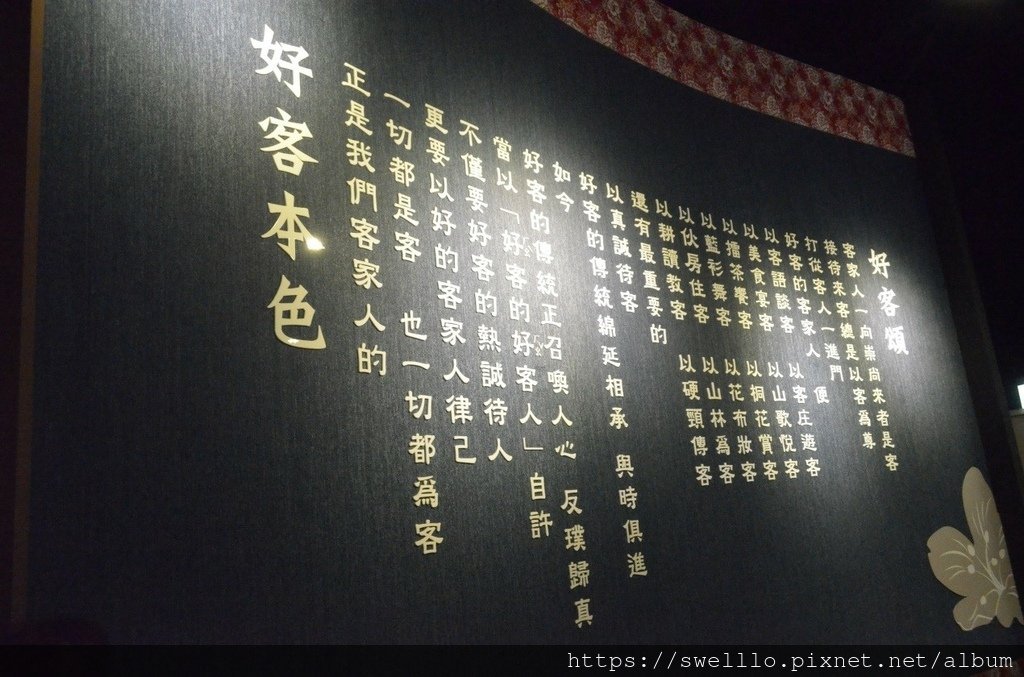 好客頌
客家人一向崇尚來者是客
接待來客總是以客為尊
打從客人一進門
好客的客家人 便
以客語談客 以客庄遊客
以美食宴客 以山歌悅客
以擂茶饗客 以桐花賞客
以藍衫舞客 以花布妝客
以伙房住客 以山林為客
以耕讀教客 以硬頸傳客
還有最重要的
以真誠待客
好客的傳統綿延相承 與時俱進
如今
好客的傳統正召喚人心 反璞歸真
當以「好客的好客人」自許
不僅要好客的熱誠待人
更要以好的客家人律己
一切都是客 也一切都爲客
正是我們客家人的
好客本色
https://swelllo.pixnet.net/album